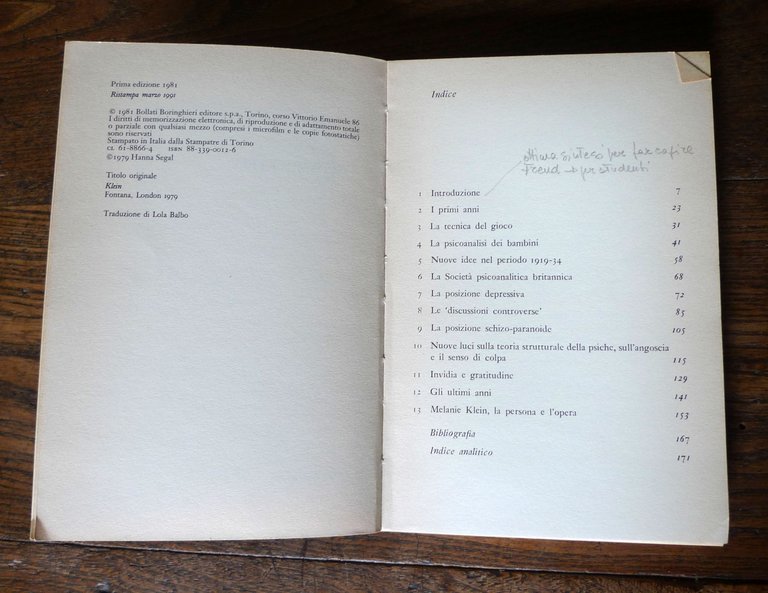 Prima edizione 1981
Ristampa marzo 1991
© 1981 Bollati Boringhieri editore s.p.a., Torino, corso Vittorio Emanuele 86
I diritti di memorizzazione elettronica, di riproduzione e di adattamento totale
o parziale con qualsiasi mezzo (compresi i microfilm e le copie fotostatiche)
sono riservati
Stampato in Italia dalla Stampatre di Torino
CL 61-8866-4 ISBN 88-339-0012-6
©1979 Hanna Segal
Titolo originale
Klein
Fontana, London 1979
Traduzione di Lola Balbo
Indice
ottima sintesi per far capire
Freud → per studenti
1 Introduzione 7
2 I primi anni 23
3 La tecnica del gioco 31
4 La psicoanalisi dei bambini 41
5 Nuove idee nel periodo 1919-34 58
6 La Società psicoanalitica britannica 68
7 La posizione depressiva 72
8 Le 'discussioni controverse' 85
9 La posizione schizo-paranoide 105
10 Nuove luci sulla teoria strutturale della psiche, sull'angoscia
e il senso di colpa 115
11 Invidia e gratitudine 129
12 Gli ultimi anni 141
13 Melanie Klein, la persona e l'opera 153
Bibliografia 167
Indice analitico 171